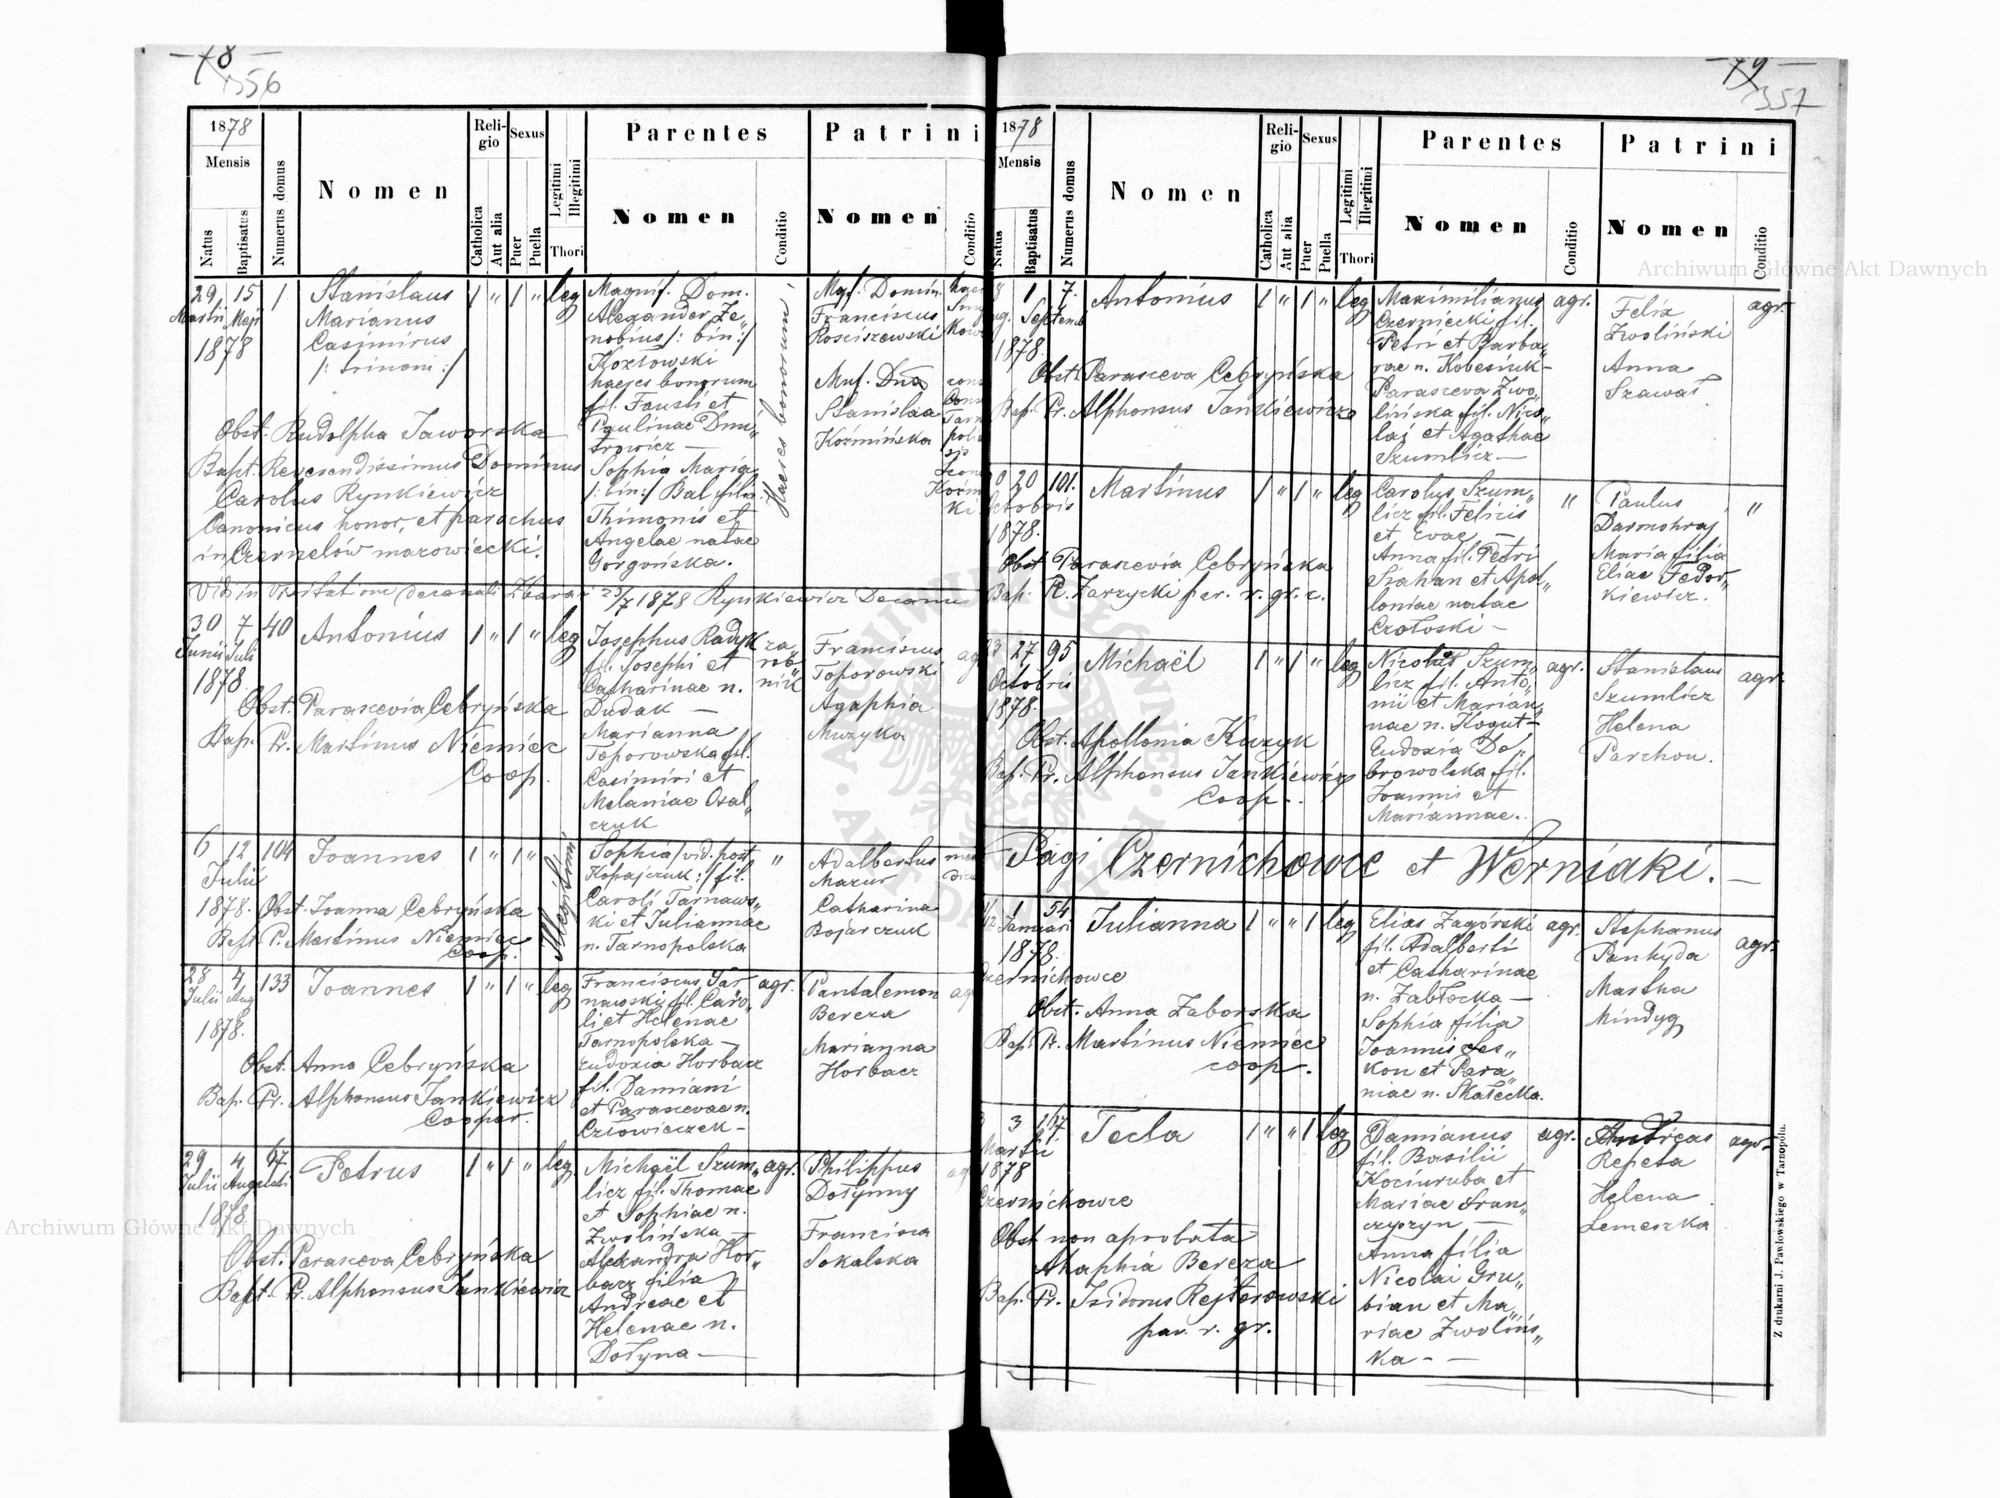 — 78 —
356
1878
Mensis
Natus
Baptisatus
Numerus domus
Nomen
Religio
Catholica
Aut alia
Sexus
Puer
Puella
Legitimi
Illegitimi
Thori
Parentes
Nomen
Conditio
Patrini
Nomen
Conditio
29 15 1 Stanislaus 1 " 1 " leg
Martii Maji Marianus
1878 Casimirus
/: trinom :/
Obst. Rudolpha Jaworska
Bapt. Reverendissimus Dominus
Carolus Rynkiewicz
Canonicus honor, et parochus
in Czernelów mazowiecki.
Magnif. Dom.
Alexander Ze„
nobius /: bin :/
Kozłowski
haeres bonorum
fil. Fausti et
Paulinae Dmi„
trowicz —
Sophia Maria
/: bin :/ Bal filia
Thimonis et
Angelae natae
Gorgońska.
Haeres bonorum
Mgf. Domin.
Franciscus
Rościszewski
Mgf. Dna
Stanislaa
Koźmińska
Vidi in visitatione decanali Zbaraż 23/7 1878 Rynkiewicz Decanus
30 7 40 Antonius 1 " 1 " leg
Junii Juli
1878
Obst. Parascevia Cebryńska
Bap. Pr. Martinus Niemiec
Coop.
Josephus Radyk
fil. Josephi et
Catharinae n.
Dudak —
Marianna
Toporowska fil.
Casimiri et
Melaniae Osal„
czuk
za„
rob„
nik
Franciscus
Toporowski
Agaphia
Muzyka
6 12 104 Joannes 1 " 1 " Illegitimi
Julii
1878. Obst. Joanna Cebryńska
Bapt P. Martinus Niemiec
Coop.
Sophia /: vid. post
Kopajczuk :/ fil.
Caroli Tarnaws„
ki et Juliannae
n. Tarnopolska
"
Adalbertus
Mazur
Catharina
Bojarczuk
28 4 133 Joannes 1 " 1 " leg
Julii Aug
1878.
Obst. Anna Cebryńska
Bap. Pr. Alphonsus Jankiewicz
Cooper.
Franciscus Tar
nawski fil. Caro„
li et Helenae
Tarnopolska —
Eudoxia Horbacz
fil. Damiani
et Parascevae n.
Człowieczek —
agr.
Pantalemon
Bereza
Marianna
Horbacz
29 4 67 Petrus 1 " 1 " leg
Julii Augusti
1878
Obst. Parasceva Cebryńska
Bapt. Pr. Alphonsus Jankiewicz
Michaël Szum„
licz fil. Thomae
et Sophiae n.
Zwolińska —
Alexandra Hor„
bacz filia
Andreae et
Helenae n.
Dołyna —
agr.
Philippus
Dołynny
Francisca
Sokalska
— 79 —
357
1878
Mensis
Natus
Baptisatus
Numerus domus
Nomen
Religio
Catholica
Aut alia
Sexus
Puer
Puella
Legitimi
Illegitimi
Thori
Parentes
Nomen
Conditio
Patrini
Nomen
Conditio
8 1 7. Antonius 1 " 1 " leg
Septemb
1878.
Obst. Parasceva Cebryńska
Bap. Pr. Alphonsus Jankiewicz
Maximilianus
Czerniecki fil.
Petri et Barba„
rae n. Kobesiuk —
Parasceva Zwo„
lińska fil. Nico„
lai et Agathae
Szumlicz —
agr.
Felix
Zwoliński
Anna
Szawał
agr.
20 101. Martinus 1 " 1 " leg
Octobris
1878.
Obst Parascevia Cebryńska
Bap. P. Zarzycki par. r. gr. c.
Carolus Szum„
licz fil. Felicis
et Evae —
Anna fil. Petri
Szahan et Apol„
loniae natae
Czołoski —
"
Paulus
Darmohraj
Maria filia
Eliae Fedor„
kiewicz.
"
23 27 95 Michaël 1 " 1 " leg
Octobris
1878.
Obst. Apollonia Kuzyk
Bap. Pr. Alphonsus Jankiewicz
Coop.
Nicolas Szum„
licz fil. Anto„
nii et Marian„
nae n. Kogut —
Eudoxia Do„
browolska fil.
Joannis et
Mariannae.
agr.
Stanislaus
Szumlicz
Helena
Parchou.
agr.
Pagi Czernichowce et Werniaki. —
1 54 Julianna 1 " " 1 leg
Januari
1878.
Czernichowce
Obst. Anna Zaborska
Bap. Pr. Martinus Niemiec
coop.
Elias Zagórski
fil. Adalberti
et Catharinae
n. Zabłocka —
Sophia filia
Joannis Les„
kou et Para
niae n. Skałecka.
agr.
Stephanus
Pankyda
Martha
Mindyg
agr.
3 117 Tecla 1 " " 1 leg
Martii
1878
Czernichowce
Obst non aprobata
Ahaphia Bereza
Bap. Pr. Isidorus Rejterowski
par. r. gr.
Damianus
fil. Basilii
Kociuruba et
Mariae Fran„
czyszyn —
Anna filia
Nicolai Gru„
bian et Ma„
riae Zwolińs„
ka —
agr.
Andreas
Repeta
Helena
Lemeszka
agr.
Z drukarni J. Pawłowskiego w Tarnopolu.
Archiwum Główne Akt Dawnych
Archiwum Główne Akt Dawnych
ARCHIWUM GŁÓWNE AKT DAWNYCH